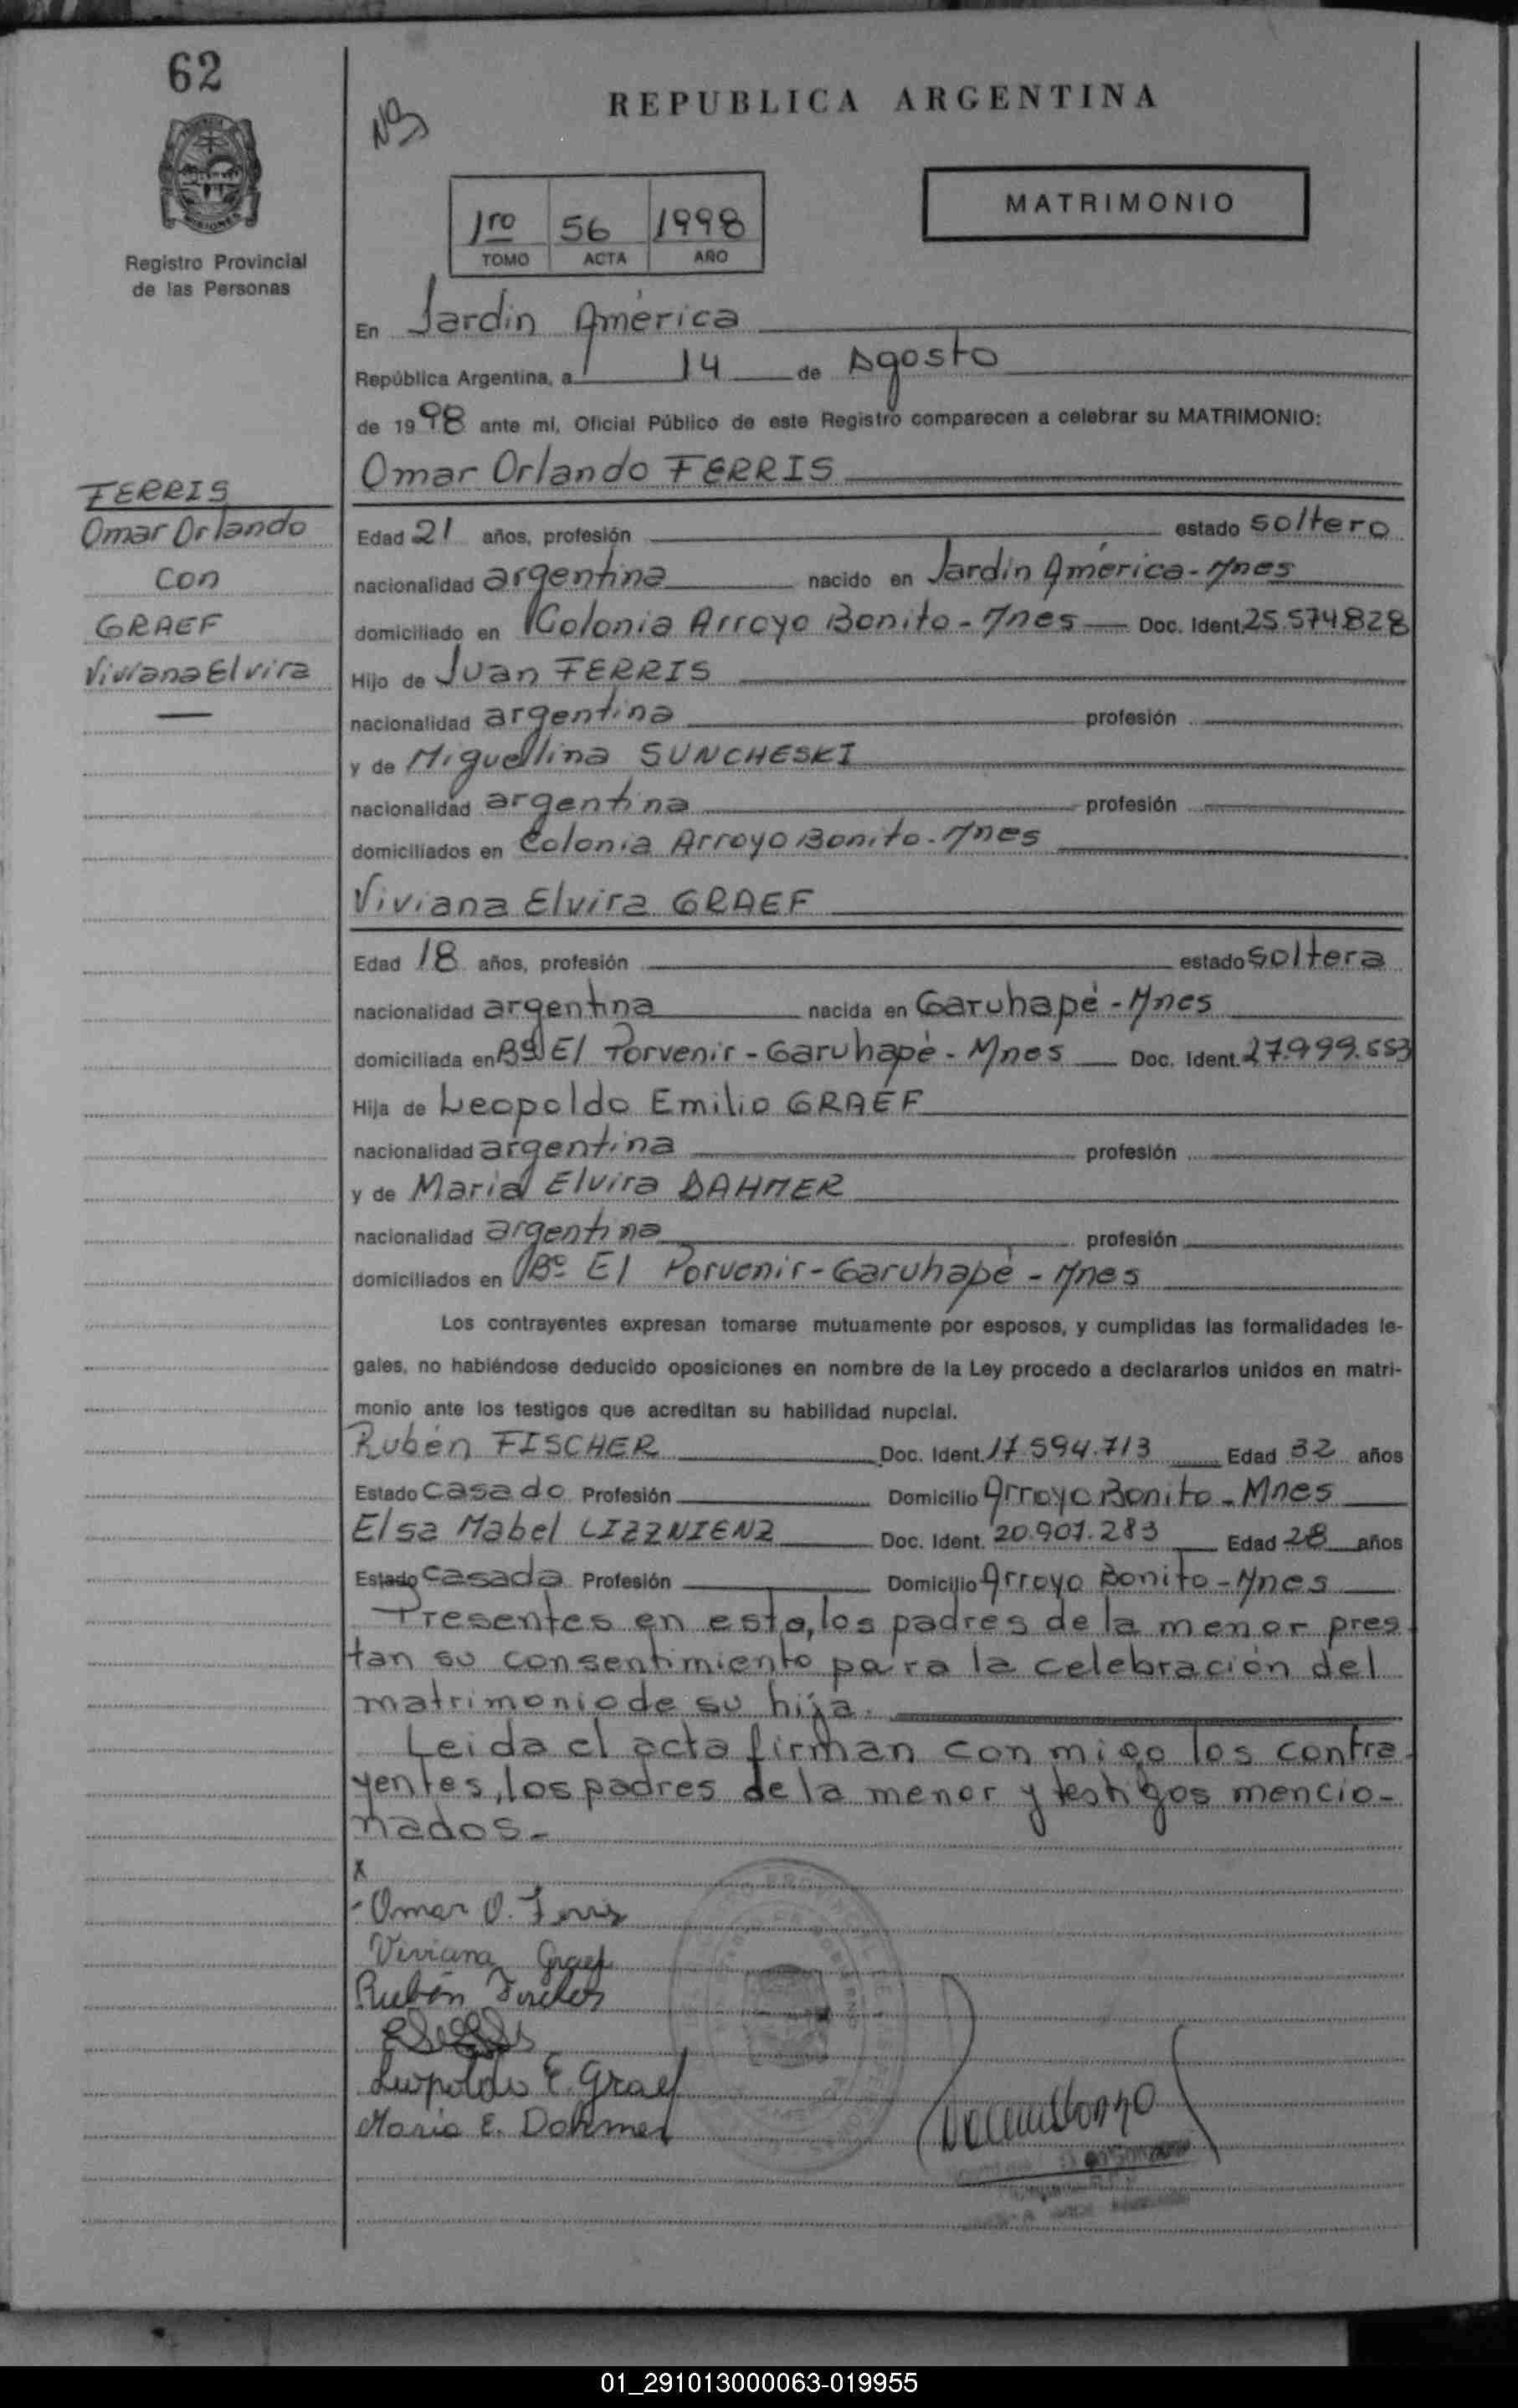 62
REPUBLICA ARGENTINA
MATRIMONIO
1ro 56 1998
TOMO ACTA AÑO
MISIONES
Registro Provincial
de las Personas
En Jardín América
República Argentina, a 14 de Agosto
de 1998 ante mí, Oficial Público de este Registro comparecen a celebrar su MATRIMONIO:
Omar Orlando FERRIS
FERRIS
Omar Orlando
con
GRAEF
Viviana Elvira
Edad 21 años, profesión estado soltero
nacionalidad argentina nacido en Jardín América - Mnes
domiciliado en Colonia Arroyo Bonito - Mnes Doc. Ident. 25.574.828
Hijo de Juan FERRIS
nacionalidad argentina profesión
y de Miguelina SUNCHESKI
nacionalidad argentina profesión
domiciliados en Colonia Arroyo Bonito - Mnes
Viviana Elvira GRAEF
Edad 18 años, profesión estado soltera
nacionalidad argentina nacida en Garuhapé - Mnes
domiciliada en Bº El Porvenir - Garuhapé - Mnes Doc. Ident. 27.999.553
Hija de Leopoldo Emilio GRAEF
nacionalidad argentina profesión
y de Maria Elvira DAHMER
nacionalidad argentina profesión
domiciliados en Bº El Porvenir - Garuhapé - Mnes
Los contrayentes expresan tomarse mutuamente por esposos, y cumplidas las formalidades le-
gales, no habiéndose deducido oposiciones en nombre de la Ley procedo a declararlos unidos en matri-
monio ante los testigos que acreditan su habilidad nupcial.
Rubén FISCHER Doc. Ident. 17.594.713 Edad 32 años
Estado casado Profesión Domicilio Arroyo Bonito - Mnes
Elsa Mabel LIZZNIENZ Doc. Ident. 20.901.283 Edad 28 años
Estado casada Profesión Domicilio Arroyo Bonito - Mnes
Presentes en esto, los padres de la menor pres
tan su consentimiento para la celebración del
matrimonio de su hija.
Leida el acta firman con migo los contra
yentes, los padres de la menor y testigos mencio-
nados.-
x
Omar O. Ferris
Viviana Graef
Rubén Fischer
Leopoldo E. Graef
Maria E. Dahmer
01_291013000063-019955